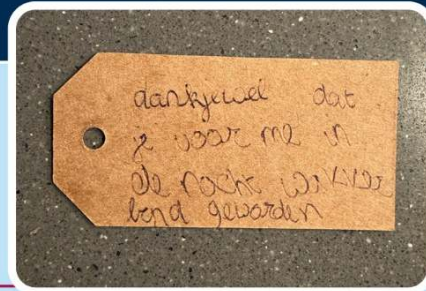 dankjewel dat
je voor me in
de nacht
bend geworden